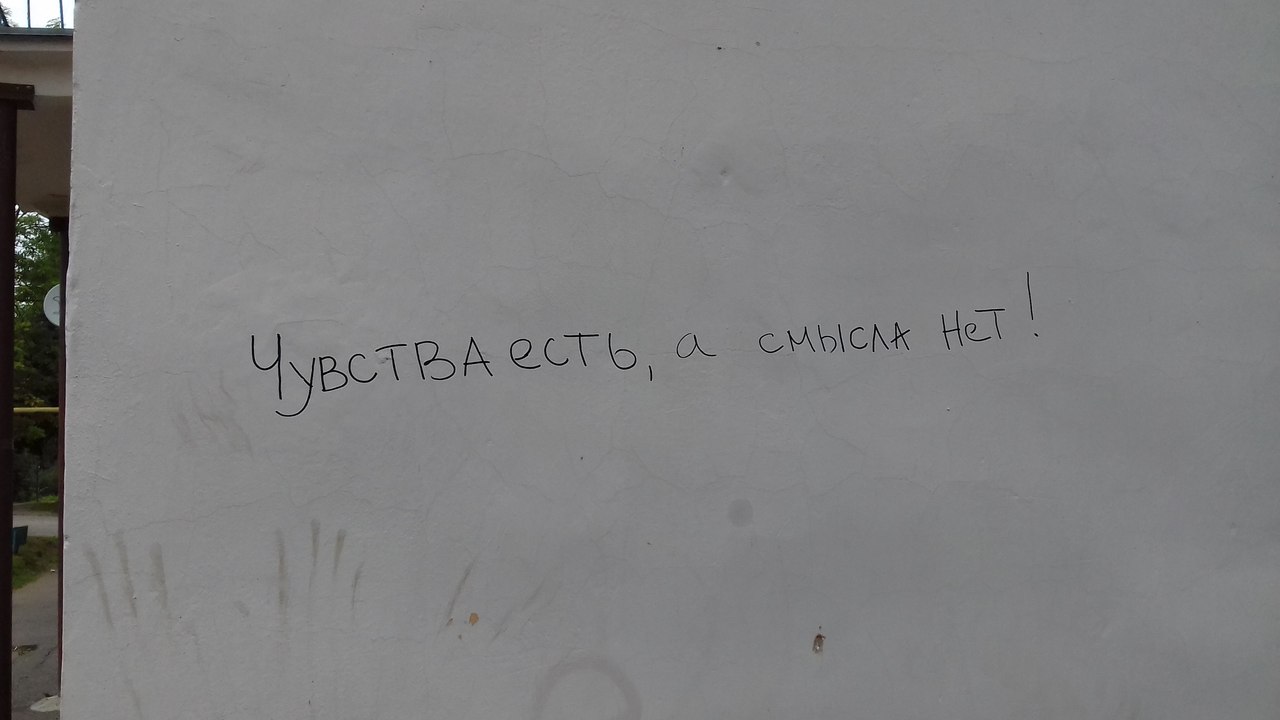 Чувства есть, а смысла нет!